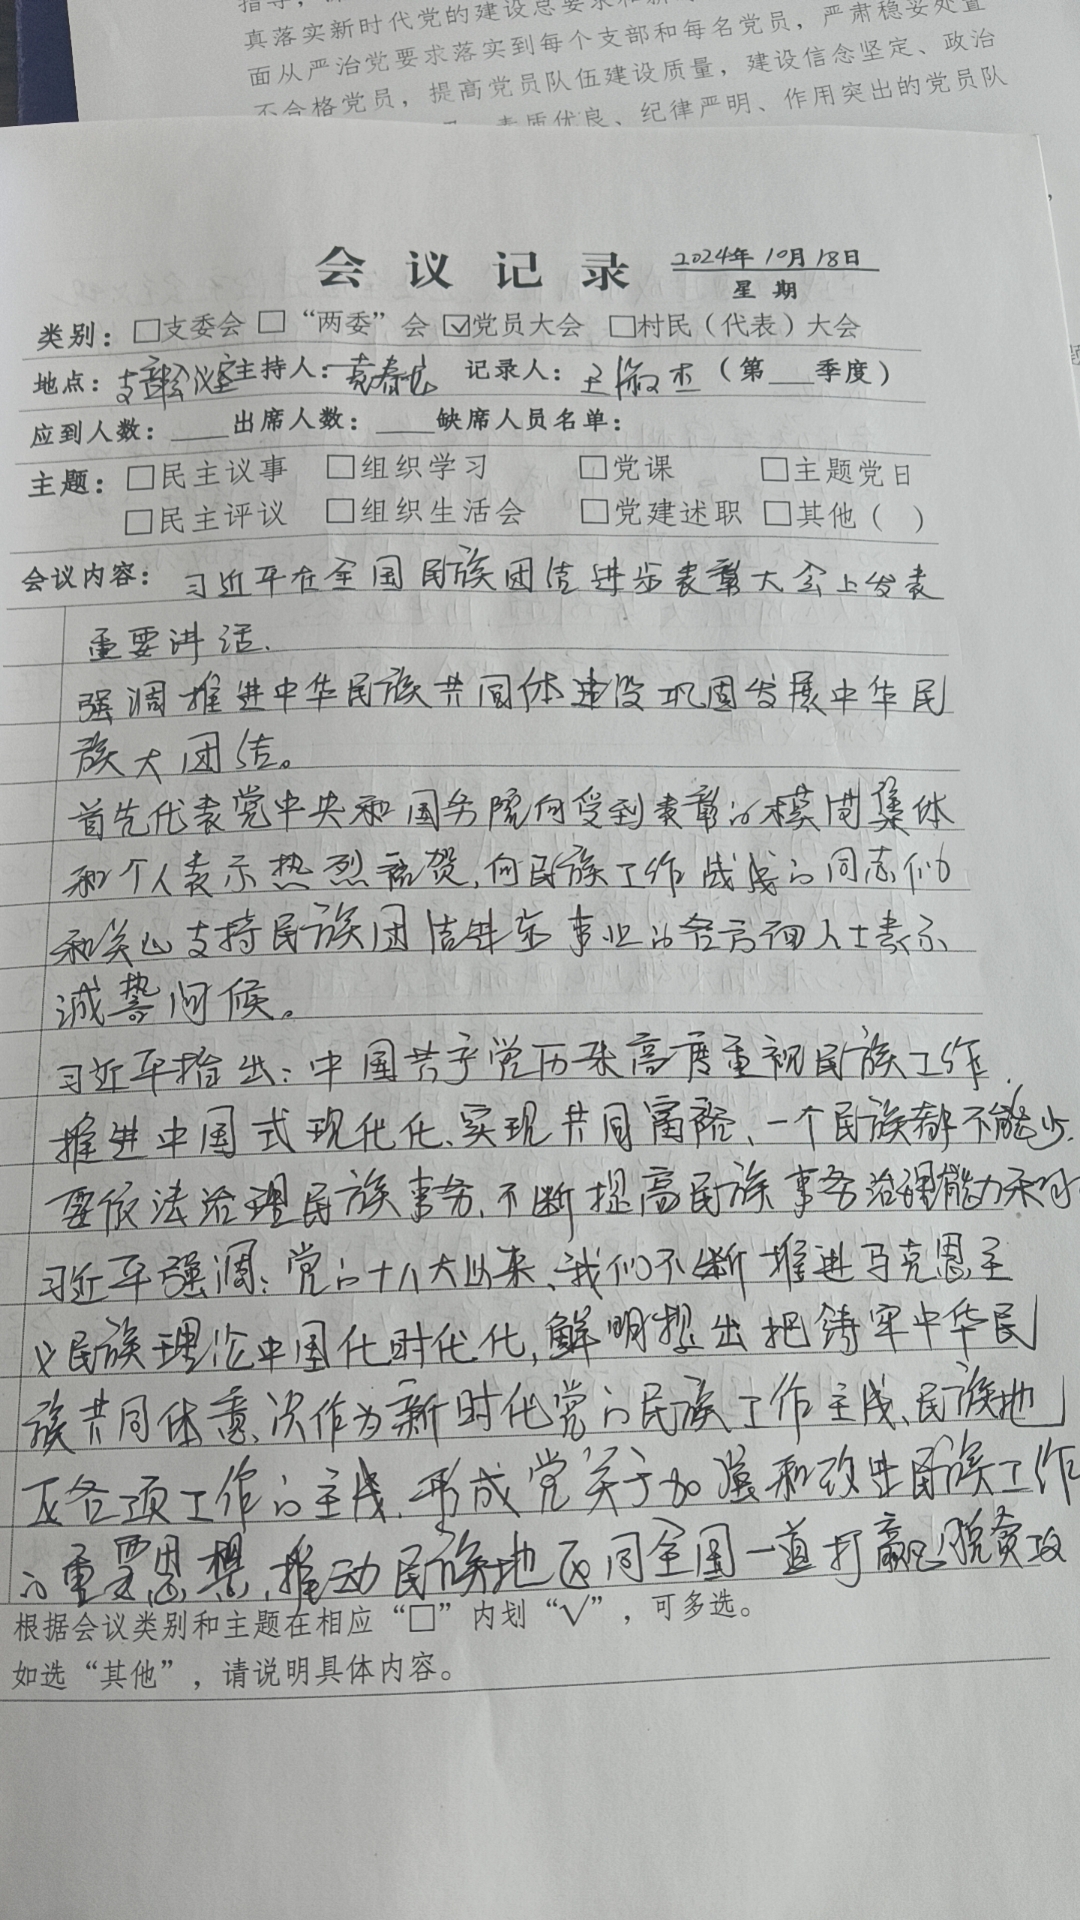 真落实新时代党的建设总要求和新
面从严治党要求落实到每个支部和每名党员，严肃稳妥处置
不合格党员，提高党员队伍建设质量，建设信念坚定、政治
素质优良、纪律严明、作用突出的党员队
会议记录 2024年10月18日
星期
类别：□支委会 □“两委”会 ☑党员大会 □村民（代表）大会
地点：支部会议室 主持人： 记录人：（第___季度）
应到人数：____出席人数：____缺席人员名单：
主题：□民主议事 □组织学习 □党课 □主题党日
□民主评议 □组织生活会 □党建述职 □其他（ ）
会议内容：习近平在全国民族团结进步表彰大会上发表
重要讲话.
强调推进中华民族共同体建设巩固发展中华民
族大团结。
首先代表党中央和国务院向受到表彰的模范集体
和个人表示热烈祝贺,向民族工作战线的同志们
和关心支持民族团结进步事业的各方面人士表示
诚挚问候。
习近平指出：中国共产党历来高度重视民族工作.
推进中国式现代化、实现共同富裕、一个民族都不能少.
要依法治理民族事务、不断提高民族事务治理能力和
习近平强调：党的十八大以来、我们不断推进马克思主
义民族理论中国化时代化,鲜明提出把铸牢中华民
族共同体意识作为新时代党的民族工作主线、民族地
区各项工作的主线.形成党关于加强和改进民族工作
的重要思想.推动民族地区同全国一道打赢脱贫攻
根据会议类别和主题在相应“□”内划“√”，可多选。
如选“其他”，请说明具体内容。